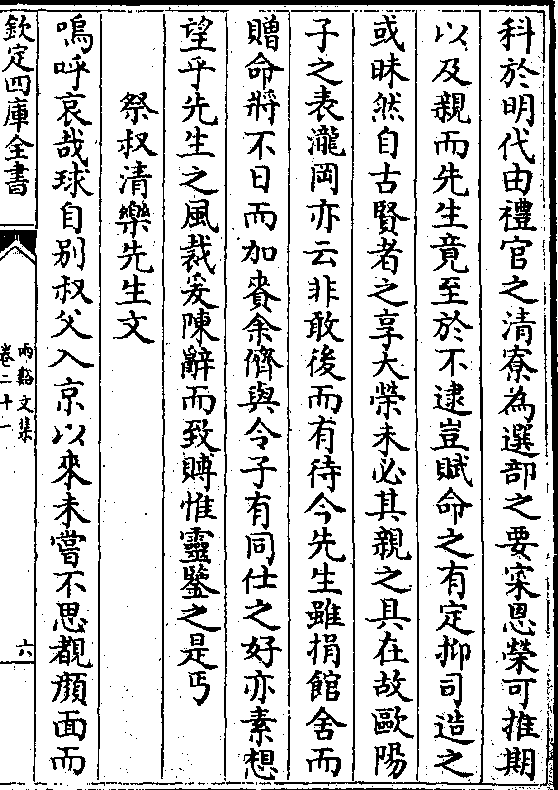 科於明代由禮官之清寮為選部之要寀恩榮可推期
以及親而先生竟至於不逮豈賦命之有定抑司造之
或昧然自古賢者之享大榮未必其親之具在故歐陽
子之表瀧岡亦云非敢後而有待今先生雖捐館舍而
贈命將不日而加賁余儕與令子有同仕之好亦素想
望乎先生之風裁爰陳辭而致賻惟靈鑒之是丐
祭叔清樂先生文
嗚呼哀哉球自别叔父入京以來未嘗不思覩顔面而
欽定四庫全書
兩谿文集
卷二十一
六